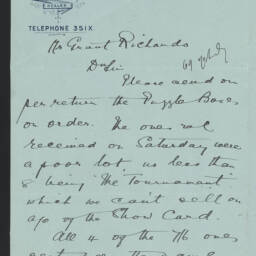 DEALER
TELEPHONE 351X
Mr Grant Richards
Dr Sir
Please send on
per return the Puzzle Boxes
on order. The ones we
received on Saturday were
a poor lot no less than
8 being 'The Tournament'
which we can't sell on
a/o of the Show Card.
All 4 of the 7/6 ones